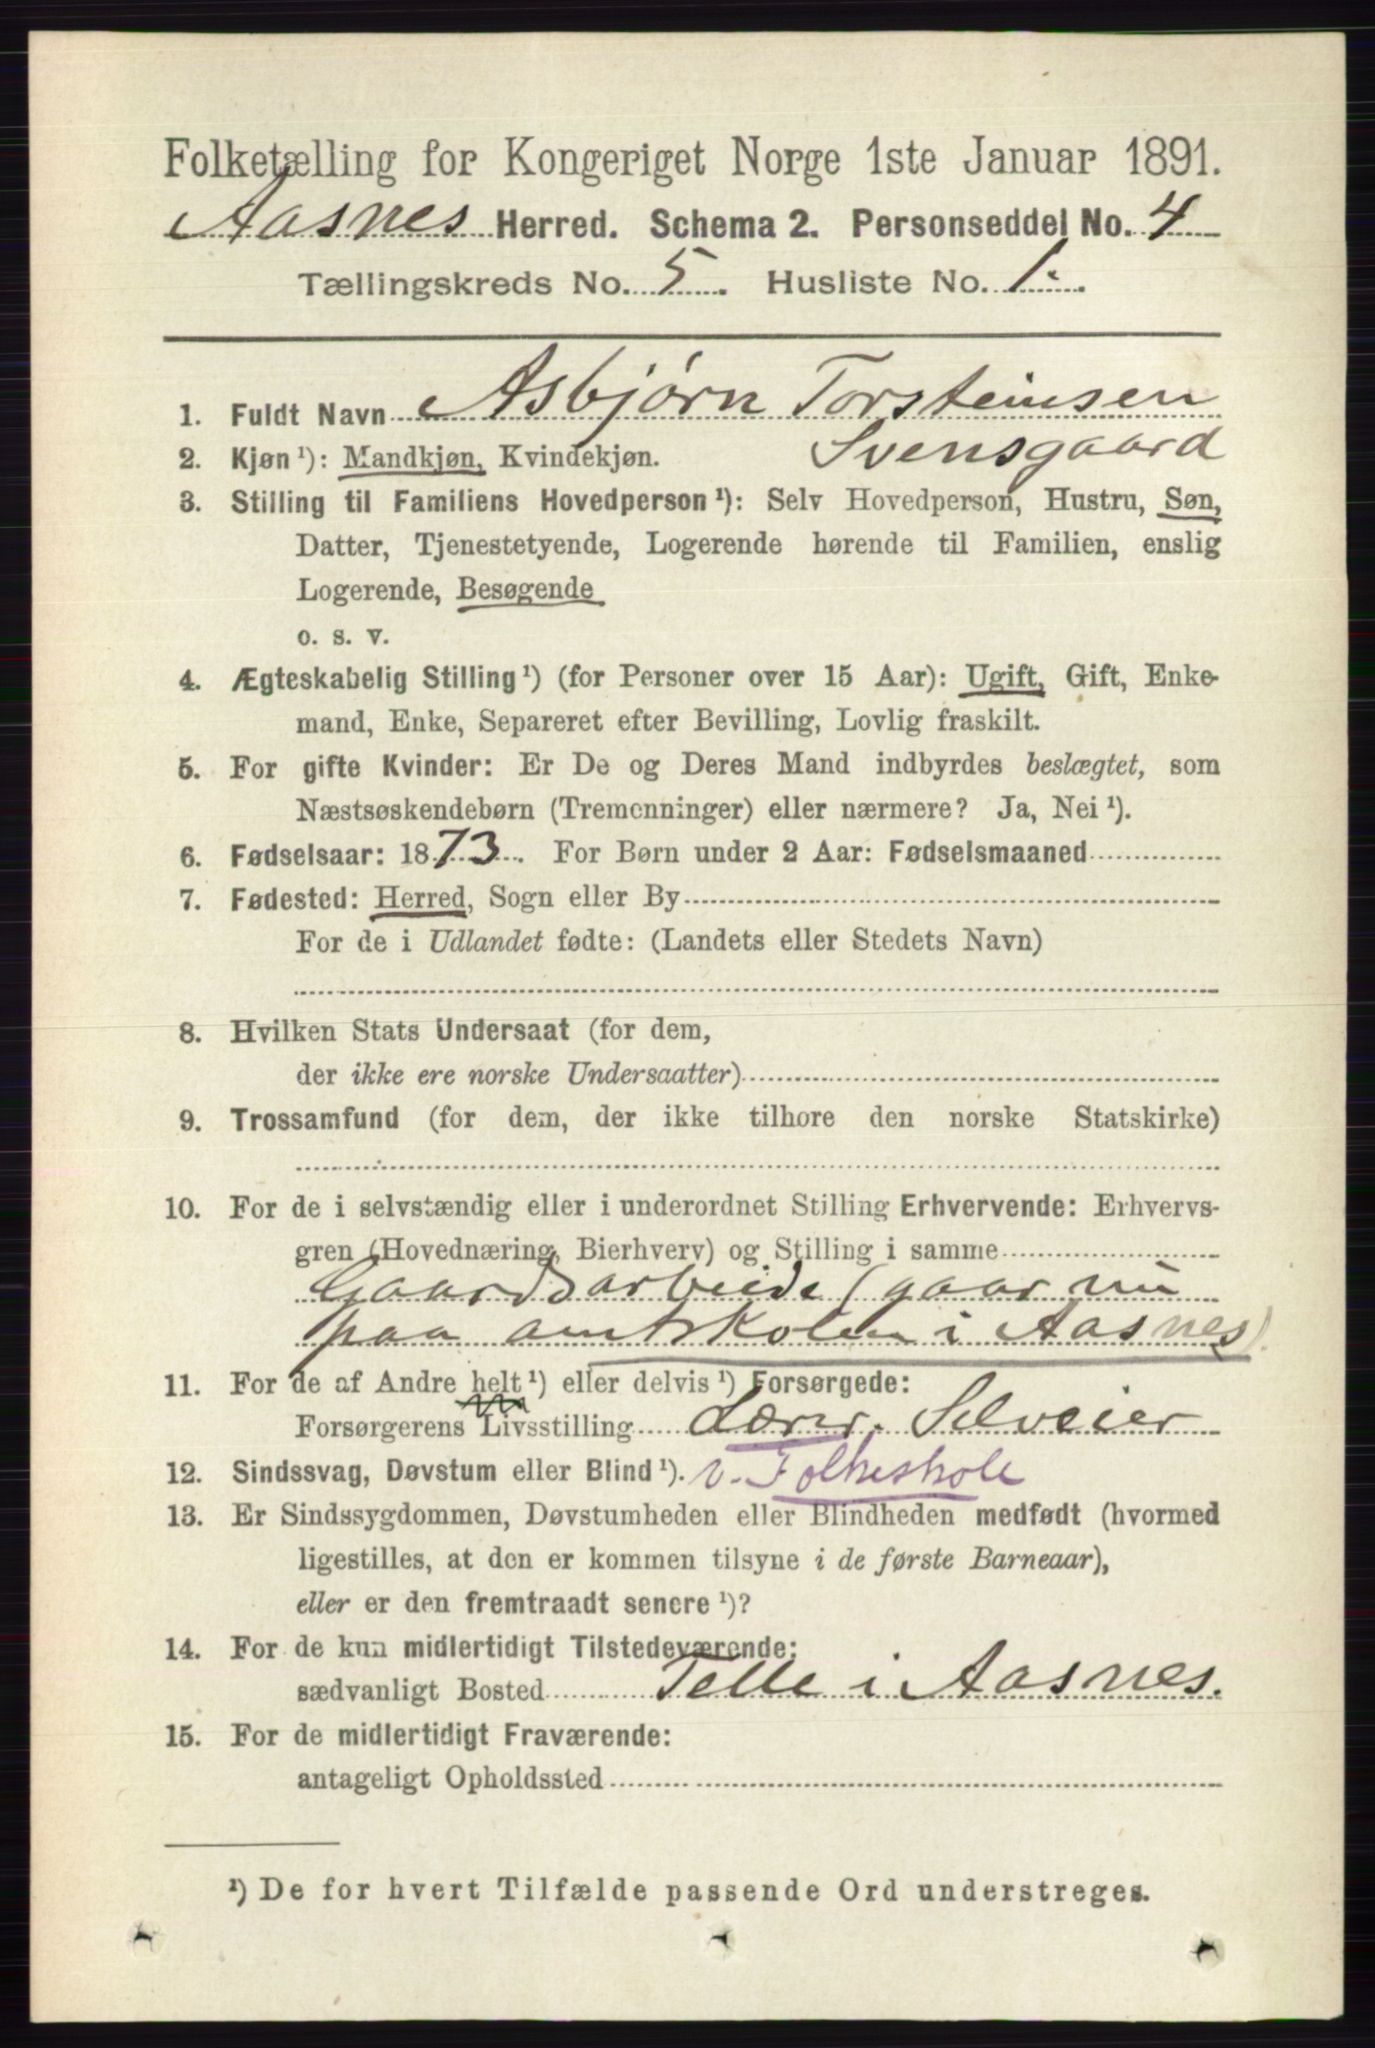 Folketælling for Kongeriget Norge 1ste Januar 1891.
Aasnes Herred. Schema 2. Personseddel No. 4
Tællingskreds No. 5. Husliste No. 1.
1. Fuldt Navn Asbjørn Torsteinsen
Svensgaard
2. Kjøn ¹): Mandkjøn, Kvindekjøn.
3. Stilling til Familiens Hovedperson ¹): Selv Hovedperson, Hustru, Søn,
Datter, Tjenestetyende, Logerende hørende til Familien, enslig
Logerende, Besøgende
o. s. v.
4. Ægteskabelig Stilling ¹) (for Personer over 15 Aar): Ugift, Gift, Enke-
mand, Enke, Separeret efter Bevilling, Lovlig fraskilt.
5. For gifte Kvinder: Er De og Deres Mand indbyrdes beslægtet, som
Næstsøskendebørn (Tremenninger) eller nærmere? Ja, Nei ¹).
6. Fødselsaar: 1873. For Børn under 2 Aar: Fødselsmaaned
7. Fødested: Herred, Sogn eller By
For de i Udlandet fødte: (Landets eller Stedets Navn)
8. Hvilken Stats Undersaat (for dem,
der ikke ere norske Undersaatter)
9. Trossamfund (for dem, der ikke tilhøre den norske Statskirke)
10. For de i selvstændig eller i underordnet Stilling Erhvervende: Erhvervs-
gren (Hovednæring, Bierhverv) og Stilling i samme
Gaardsarbeide (gaar nu
paa amtskolen i Aasnes).
11. For de af Andre helt ¹) eller delvis ¹) Forsørgede:
Forsørgerens Livsstilling Lærer. Selveier
v. Folkeskole
12. Sindssvag, Døvstum eller Blind ¹).
13. Er Sindssygdommen, Døvstumheden eller Blindheden medfødt (hvormed
ligestilles, at den er kommen tilsyne i de første Barneaar),
eller er den fremtraadt senere ¹)?
14. For de kun midlertidigt Tilstedeværende:
sædvanligt Bosted Telle i Aasnes.
15. For de midlertidigt Fraværende:
antageligt Opholdssted
¹) De for hvert Tilfælde passende Ord understreges.